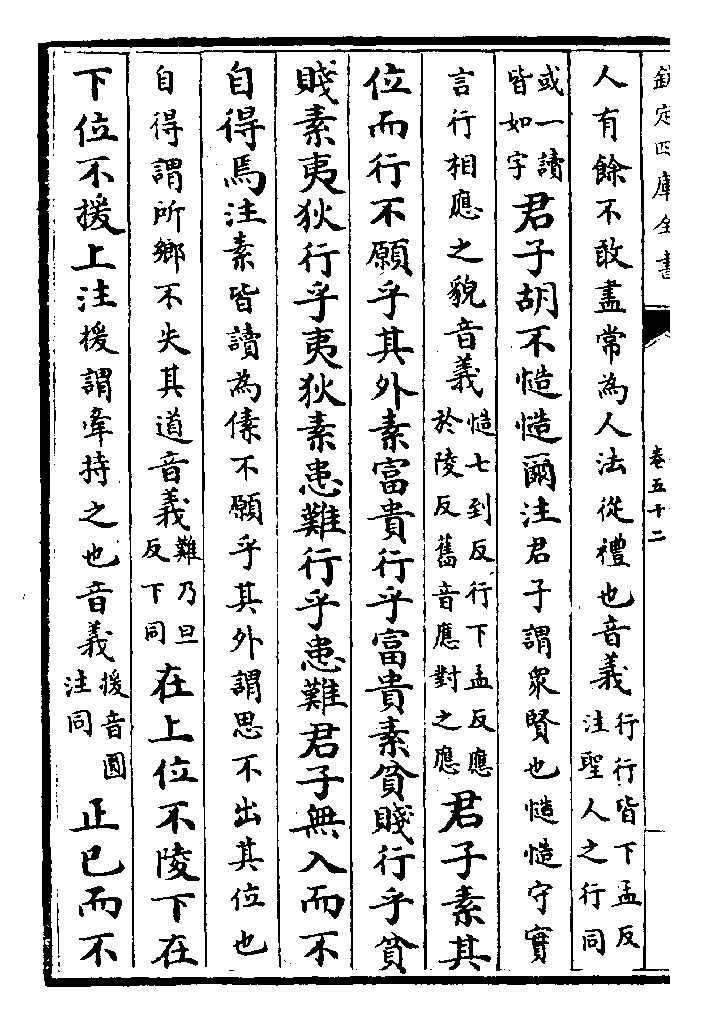 欽定四庫全書
卷五十二
人有餘不敢盡常為人法從禮也音義行行皆下孟反注聖人之行同
或一讀皆如字君子胡不慥慥爾注君子謂衆賢也慥慥守實
言行相應之貌音義慥七到反行下孟反應於陵反舊音應對之應君子素其
位而行不願乎其外素富貴行乎富貴素貧賤行乎貧
賤素夷狄行乎夷狄素患難行乎患難君子無入而不
自得焉注素皆讀為傃不願乎其外謂思不出其位也
自得謂所鄉不失其道音義難乃旦反下同在上位不陵下在
下位不援上注援謂牽持之也音義援音園注同正已而不